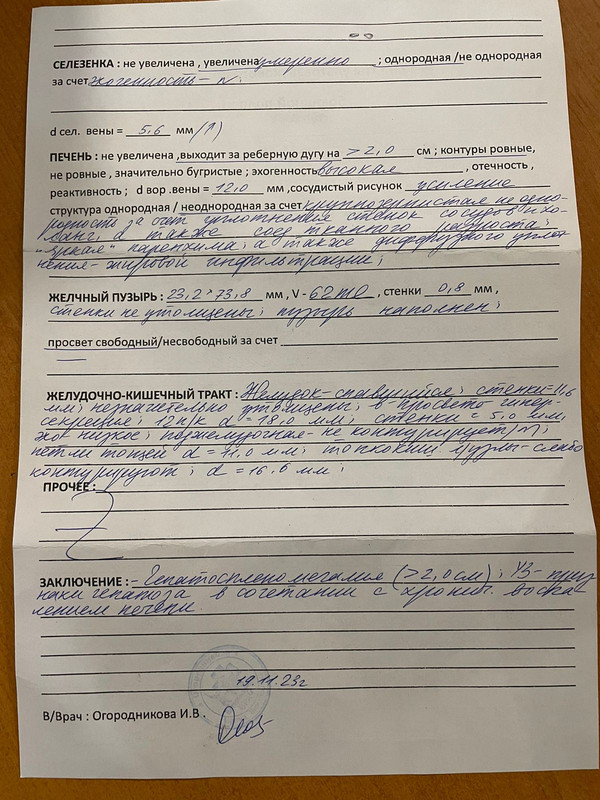 СЕЛЕЗЕНКА : не увеличена , увеличена умеренно ; однородная /не однородная
за счет эхогенность – N ;
d сел. вены = 5,6 мм (↑)
ПЕЧЕНЬ : не увеличена ,выходит за реберную дугу на > 2,0 см ; контуры ровные,
не ровные , значительно бугристые ; эхогенность высокая , отечность ,
реактивность ; d вор .вены = 12,0 мм ,сосудистый рисунок усиление
структура однородная / неоднородная за счет крупнозернистая не одно-
родность за счет уплотнения стенок сосудов и хо-
ланг. а также соед. тканного
"яркая" паренхима; а также диффузного уплот-
нения – жировой инфильтрации ;
ЖЕЛЧНЫЙ ПУЗЫРЬ : 23,2 × 73,8 мм , V - 62 ml , стенки 0,8 мм ,
стенки не утолщены ; пузырь наполнен ;
просвет свободный/несвободный за счет
ЖЕЛУДОЧНО-КИШЕЧНЫЙ ТРАКТ : Желудок – спавшийся ; стенки = 11,6
мм ; незначительно утолщены ; в просвете гипер-
секреция ; 12 п/к d = 18,0 мм ; стенки = 5,0 мм,
эхо низкое ; поджелудочная – не контурирует /N/ ;
петли тощей d = 11,0 мм ; л/узлы – слабо
контурируют ; d = 16,6 мм ;
ПРОЧЕЕ :
ЗАКЛЮЧЕНИЕ : – Гепатоспленомегалия (> 2,0 см) ; УЗ – приз-
наки гепатоза в сочетании с хронич. воспа-
лением печени.
19.11.23г
В/Врач : Огородникова И.В .